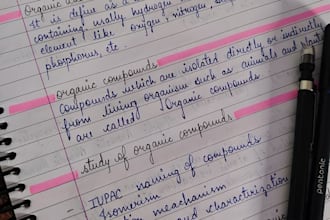 organic
It is define as a
containing usally hydrogen
element like oxygen, nitrogen,
phosphorus, etc.
organic compounds
compounds which are isolated directly or indirectly
from living organism such as animals and plants
are called Organic compounds.
study of organic compounds
IUPAC naming of compounds
Isomerism
meachanism
and charactrization
pentonic